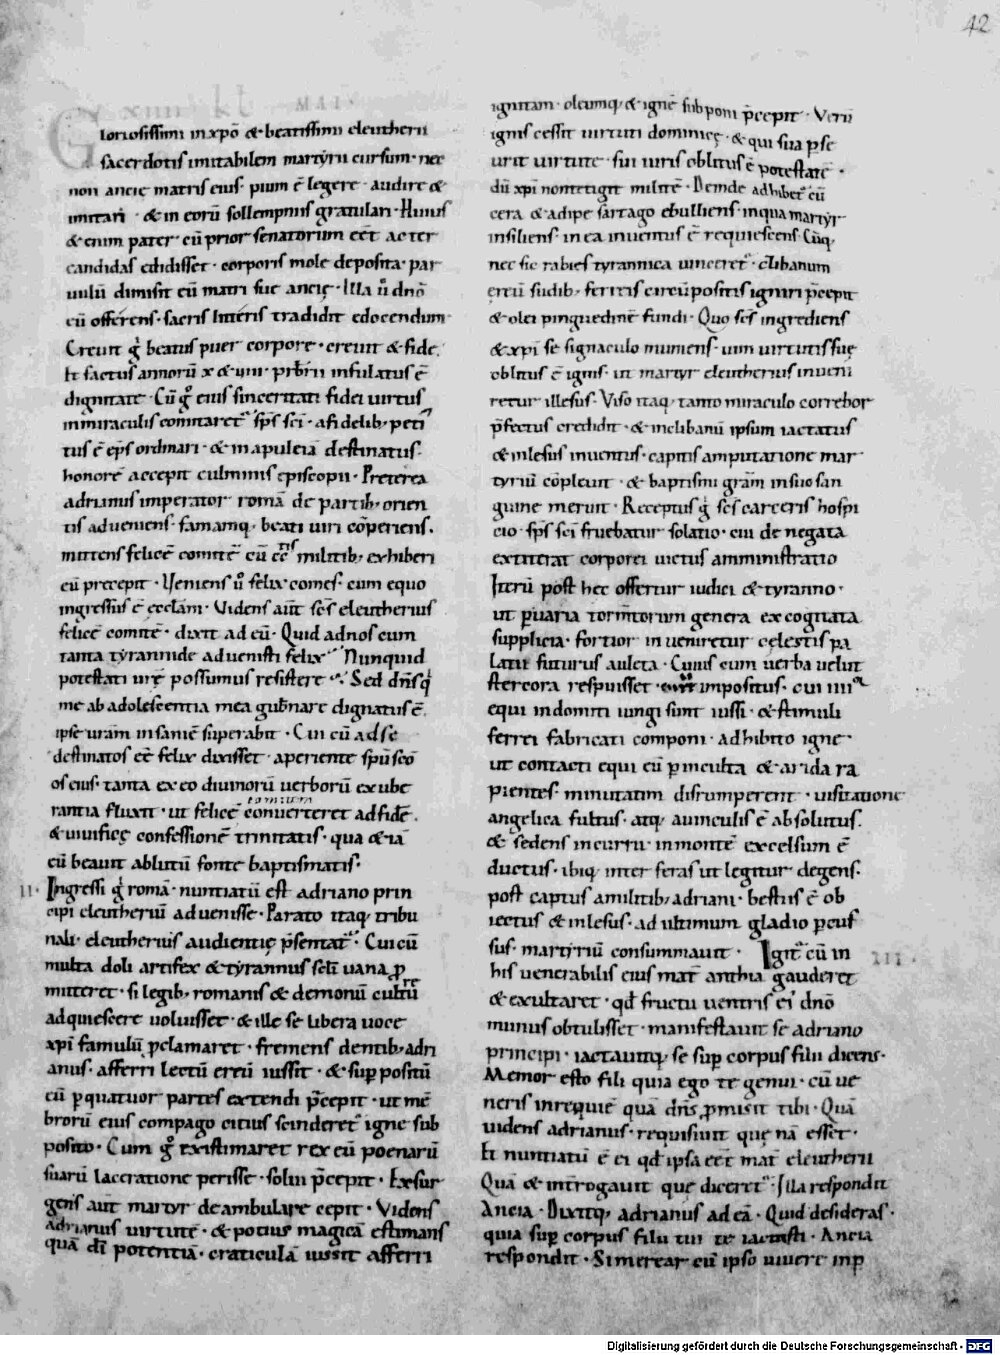 42
xiiii kł MAI·
Gloriosissimi in xp̄o & beatissimi eleutherii
sacerdotis imitabilem martyrii cursum· nec
non ancię matris eius· pium ē legere· audire &
imitari· & in eorū sollempniis gratulari· Huius
& enim pater· cū prior senatorum eēt ac ter
candidas edidisset· corporis mole deposita· par
uulū dimisit cū matri suę ancię· Illa ū dn̄o
eū offerens· sacris litteris tradidit edocendum·
Creuit g̊ beatus puer corpore· creuit & fide.
Et factus annorū x & iiii· pr̄brii infulatus ē
dignitate· Cū g̊ eius sinceritati fidei virtus
in miraculis comitaret᷑ sp̄s sc̄i· a fidelib; peti
tus ē ep̄s ordinari· & in apuleia destinatus·
honorē accepit culminis episcopii· Preterea
adrianus imperator romā de partib; orien
tis adueniens· famamq; beati uiri cōperiens.
mittens felicē comitē cū cc̄tis militib; exhiberi
eū precepit· Veniens ū felix comes· cum equo
ingressus ē eccl̄am· Videns aūt sc̄s eleutherius
felicē comitē· dixit ad eū· Quid ad nos cum
tanta tyrannide aduenisti felix· Nunquid
potestati ur̄e possumus resistere· Sed dn̄s q̇
me ab adolescentia mea gub̄nare dignatus ē.
ipse ur̄am insaniē superabit· Cui cū ad se
destinatos eē felix dixisset· aperiente sp̄u sc̄o
os eius· tanta ex eo diuinorū uerborū exube
rantia fluxit· ut felicē comitem conuerteret ad fidē.
& uiuificę confessionē trinitatis· qua & iā
cū beauit ablutū fonte baptismatis·
II· Ingressi g̊ romā· nuntiatū est adriano prin
cipi eleutheriū aduenisse· Parato itaq; tribu
nali· eleutherius audientię p̄sentat᷑· Cui cū
multa doli artifex & tyrannus sc̄li uana ꝓ
mitteret· si legib; romanis & demonū culturę
adquiescere uoluisset· & ille se libera uoce
xp̄i famulū ꝓclamaret· fremens dentib; adri
anus· afferri lectū ereū iussit· & sup̄positū
eū p̄ quatuor partes extendi p̄cepit· ut mē
brorū eius compago citius scinderet᷑ igne sub
posito· Cum g̊ existimaret rex eū poenarū
suarū laceratione perisse· solui p̄cepit· Exsur
gens aūt martyr deambulare cepit· Videns
adrianus uirtutē· & potius magicā estimans
quā dī potentiā· craticulā iussit afferri
ignitam· oleumq; & ignē subponi p̄cepit· Verū
ignis cessit uirtuti dominicę· & qui sua p̄se
urit uirtute· sui iuris oblitus ē potestatē·
dū xp̄i non tetigit militē· Deinde adhibet᷑ eū
cera & adipe sartago ebulliens· in qua martyr
insiliens· in ea inuentus ē requiescens· Cūq;
nec sic rabies tyrannica uinceret᷑· clibanum
ereū sudib; ferreis circūpositis igniri p̄cepit
& olei pinguedinē fundi· Quo sc̄s ingrediens
& xp̄i se signaculo muniens· uim uirtutis suę
oblitus ē ignis· ut martyr eleutherius inueni
retur illesus· Viso itaq; tanto miraculo correbor
p̄fectus credidit· & in clibanū ipsum iactatus
& inlesus inuentus· capitis amputatione mar
tyriū cōpleuit· & baptismi gr̄am in suo san
guine meruit· Receptus g̊ sc̄s carceris hospi
cio· sp̄s sc̄i fruebatur solatio· cui denegata
extiterat corporei uictus amministratio
Iterū post hec offertur iudici & tyranno·
ut p̄ uaria tormentorum genera excogitata
supplicia· fortior inueniretur cęlestis pa
latii futurus auleta· Cuius cum uerba uelut
stercora respuisset· impositus· cui iiiior
equi indomiti iungi sunt iussi· & stimuli
ferrei fabricati componi· adhibito igne·
ut contacti equi eū p̄ inculta & arida ra
pientes· minutatim disrumperent· uisitatione
angelica fultus· atq; a uinculis ē absolutus.
& sedens in curru· in montē excelsum ē
ductus· ibiq; inter feras ut legitur degens·
post captus a militib; adriani· bestiis ē ob
iectus & inlesus· ad ultimum gladio p̄cus
sus· martyriū consummauit· Igit᷑ cū in III·
his uenerabilis eius mat̄ anthia gauderet
& exultaret· qd̄ fructū uentris ei dn̄o
munus obtulisset· manifestauit se adriano
principi· iactauitq; se sup̄ corpus filii dicens·
Memor esto fili quia ego te genui· cū ue
neris in requiē quā dn̄s ꝓmisit tibi· Quā
uidens adrianus· requisiuit quę nā esset·
Et nuntiatū ē ei qd̄ ipsa eēt mat̄ eleutherii
Quā & int̄rogauit quę diceret᷑· Illa respondit
Ancia· Dixitq; adrianus ad eā· Quid desideras·
quia sup̄ corpus filii tui te iactasti· Ancia
respondit· Si merear cū ipso uiuere in p̄
Digitalisierung gefördert durch die Deutsche Forschungsgemeinschaft - DFG